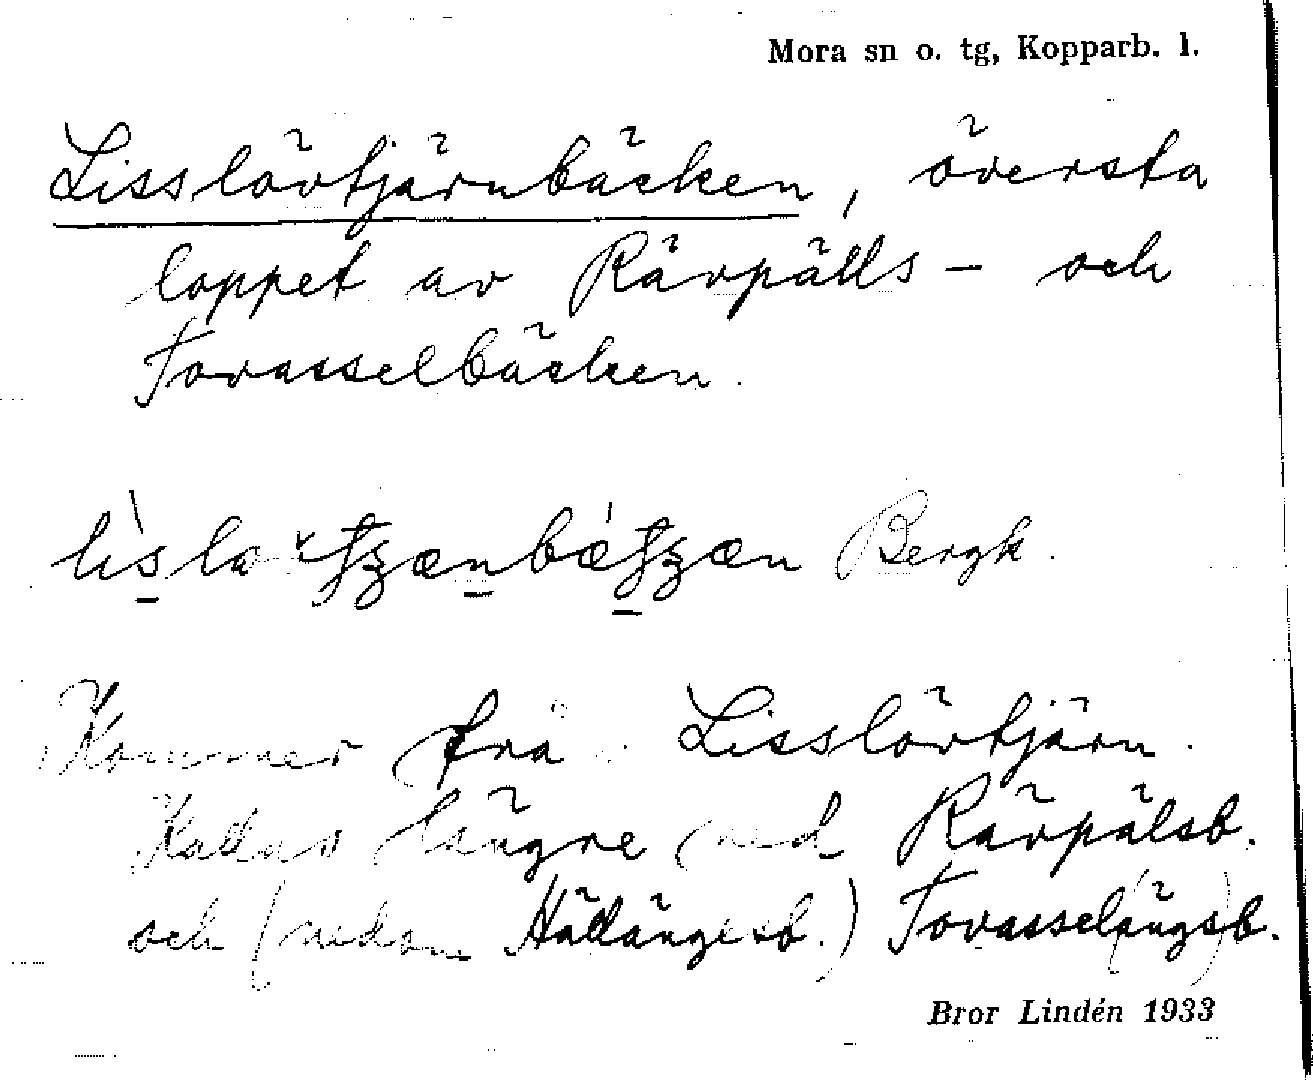 Mora sn o. tg, Kopparb. l.
Lisslövtjärnbäcken, översta
loppet av Rävpälls- och
Tovasselbäcken.
Bergk.
Kommer från Lisslövtjärn.
Kallas längre ned Rävpälsb.
och (nedom Hållängesb.) Tovassel(ängs)b.
Bror Lindén 1933